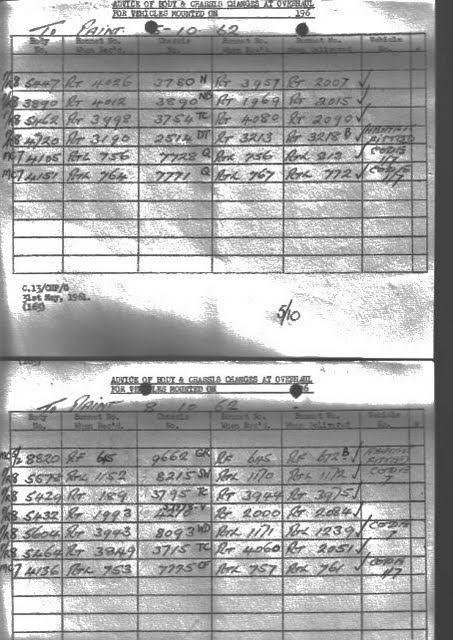 ADVICE OF BODY & CHASSIS CHANGES AT OVERHAUL
FOR VEHICLES MOUNTED ON 196
To PAINT 5-10-62
Body No. Bonnet No. When Rec'd. Chassis No. Bonnet No. When Rec'd. Bonnet No. When Delivered Vehicle No.
5447 RT 4026 3780 N RT 3957 RT 2007 ✓
3890 RT 4012 3890 RT 1969 RT 2015 ✓
5462 RT 3998 3754 TC RT 4080 RT 2090 ✓
4720 RT 3190 2514 DT RT 3213 RT 3218 B ✓
4105 RTL 756 7728 Q RTL 756 RTL 812 ✓
4151 RTL 764 7771 Q RTL 767 RTL 772 ✓
C.13/CHF/G
31st May, 1961.
(165)
5/10
ADVICE OF BODY & CHASSIS CHANGES AT OVERHAUL
FOR VEHICLES MOUNTED ON 196
To PAINT 8 10 62
Body No. Bonnet No. When Rec'd. Chassis No. Bonnet No. When Rec'd. Bonnet No. When Delivered Vehicle No.
8820 RF 645 9662 GR RF 645 RF 672 B ✓
RTL 1152 8215 SW RTL 1170 RTL 1172 ✓
5429 RT 189 3795 TC RT 3944 RT 3975 ✓
5432 RT 1993 RT 2000 RT 2084 ✓
5604 RT 3943 8093 WD RTL 1171 RTL 1239 ✓
5464 RT 3949 3715 TC RT 4060 RT 2051 ✓
4136 RTL 753 7775 OF RTL 757 RTL 761 ✓